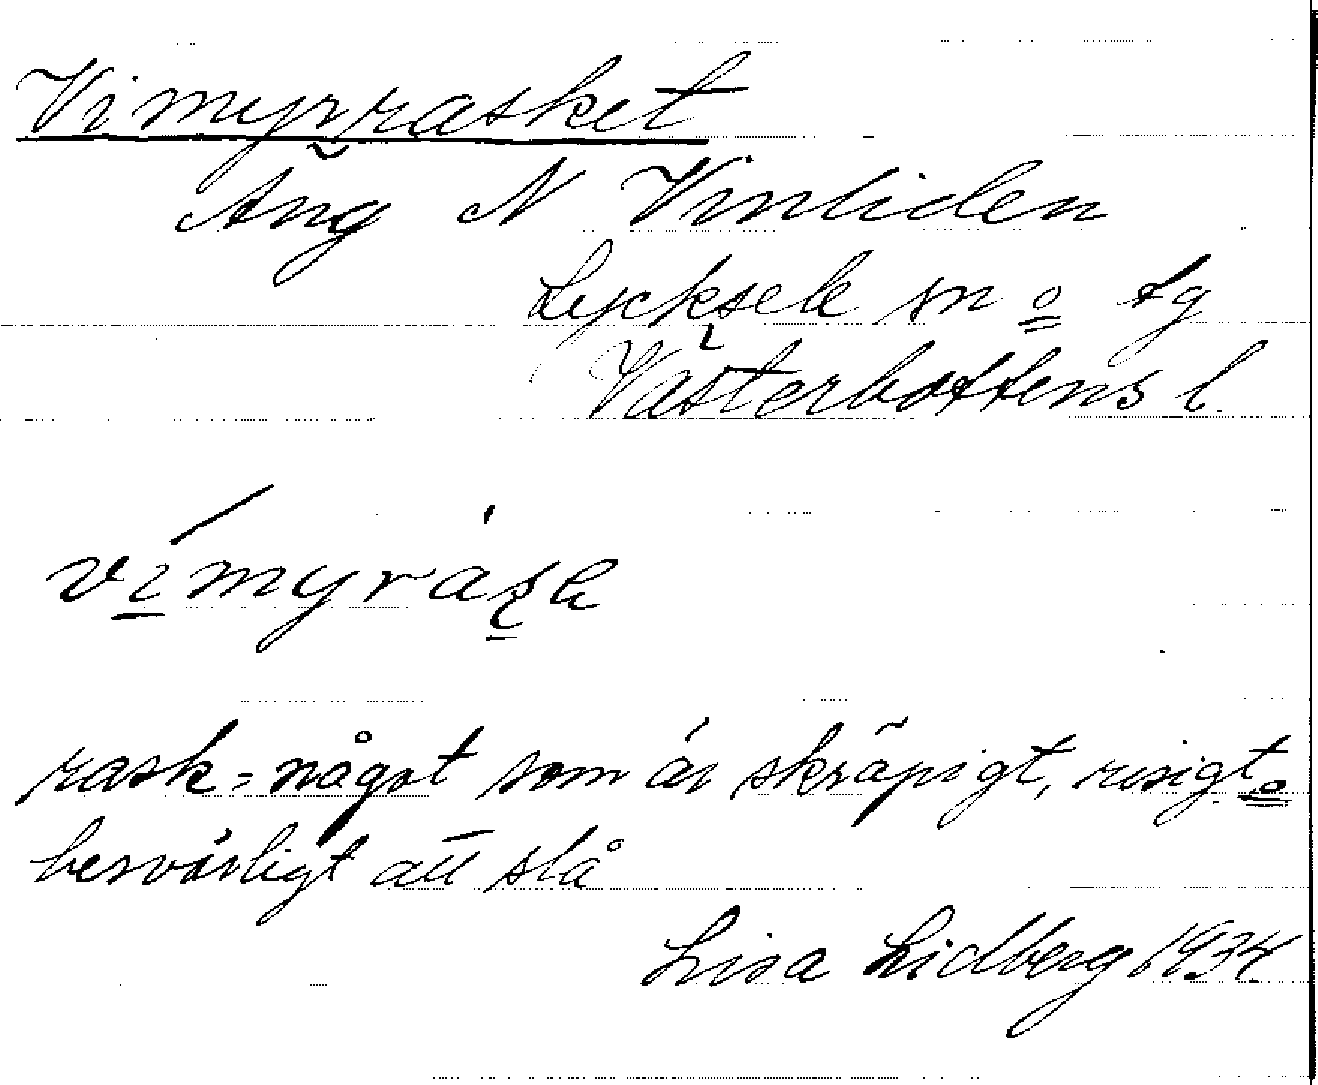 Vimyrrasket
Äng N Vinliden
Lycksele sn o tg
Västerbottens l.
vímyrásk
rask = något som är skräpigt, risigt o
besvärligt att slå
Lisa Lidberg 1934